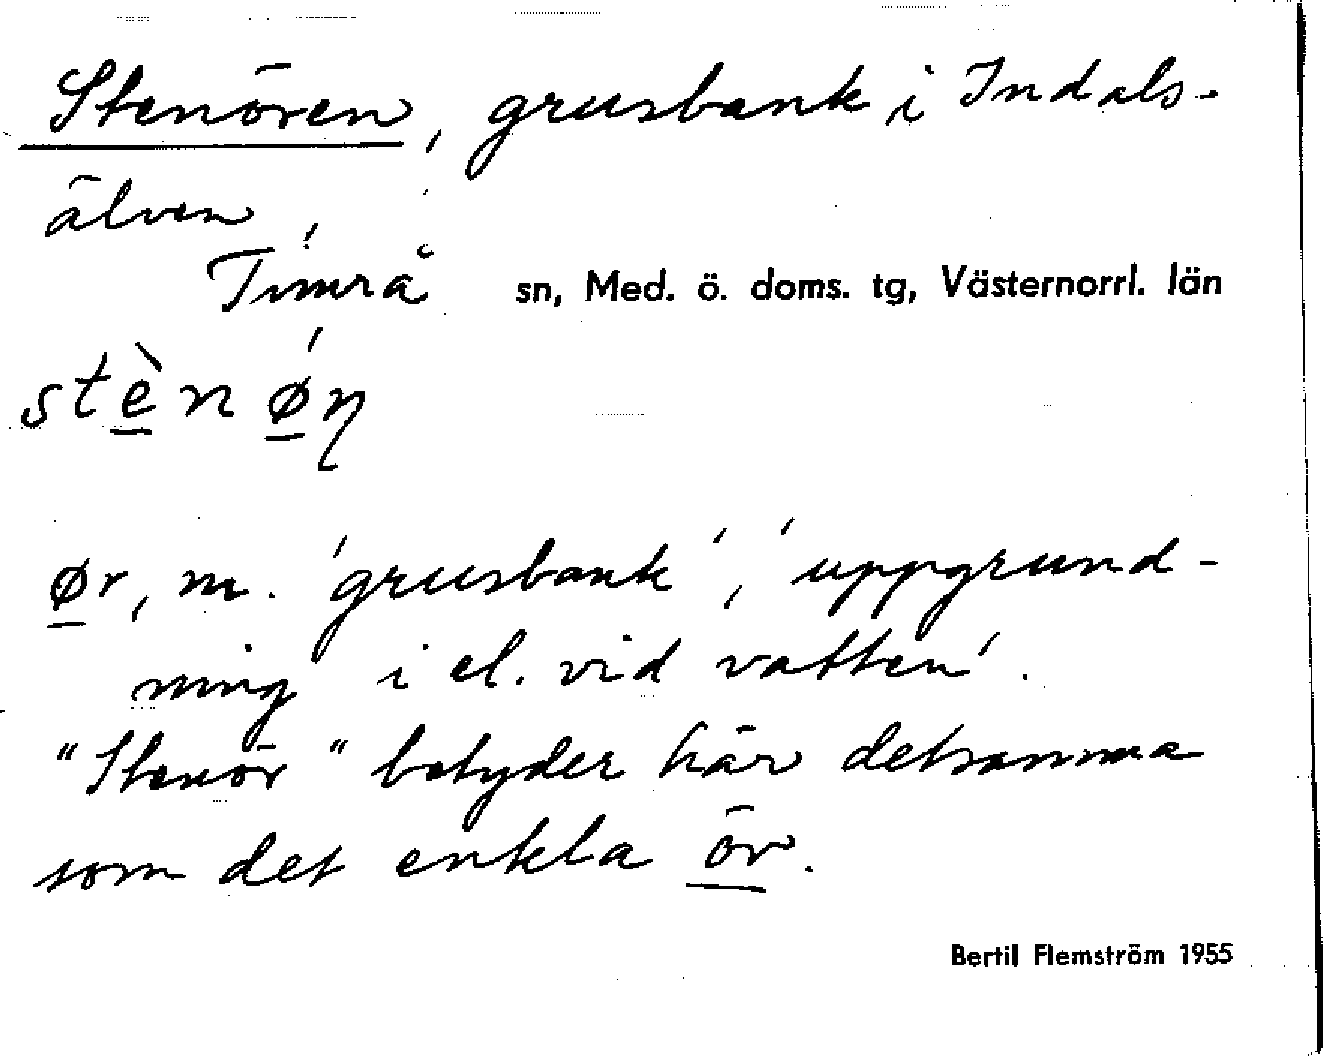 Stenören, grusbank i Indals-
älven,
Timrå sn, Med. ö. doms. tg, Västernorrl. län
stè̱n ǿ̱ŋ
ø̱r, m. 'grusbank', 'uppgrund-
ning i el. vid vatten'.
"Stenör" betyder här detsamma
som det enkla ör.
Bertil Flemström 1955